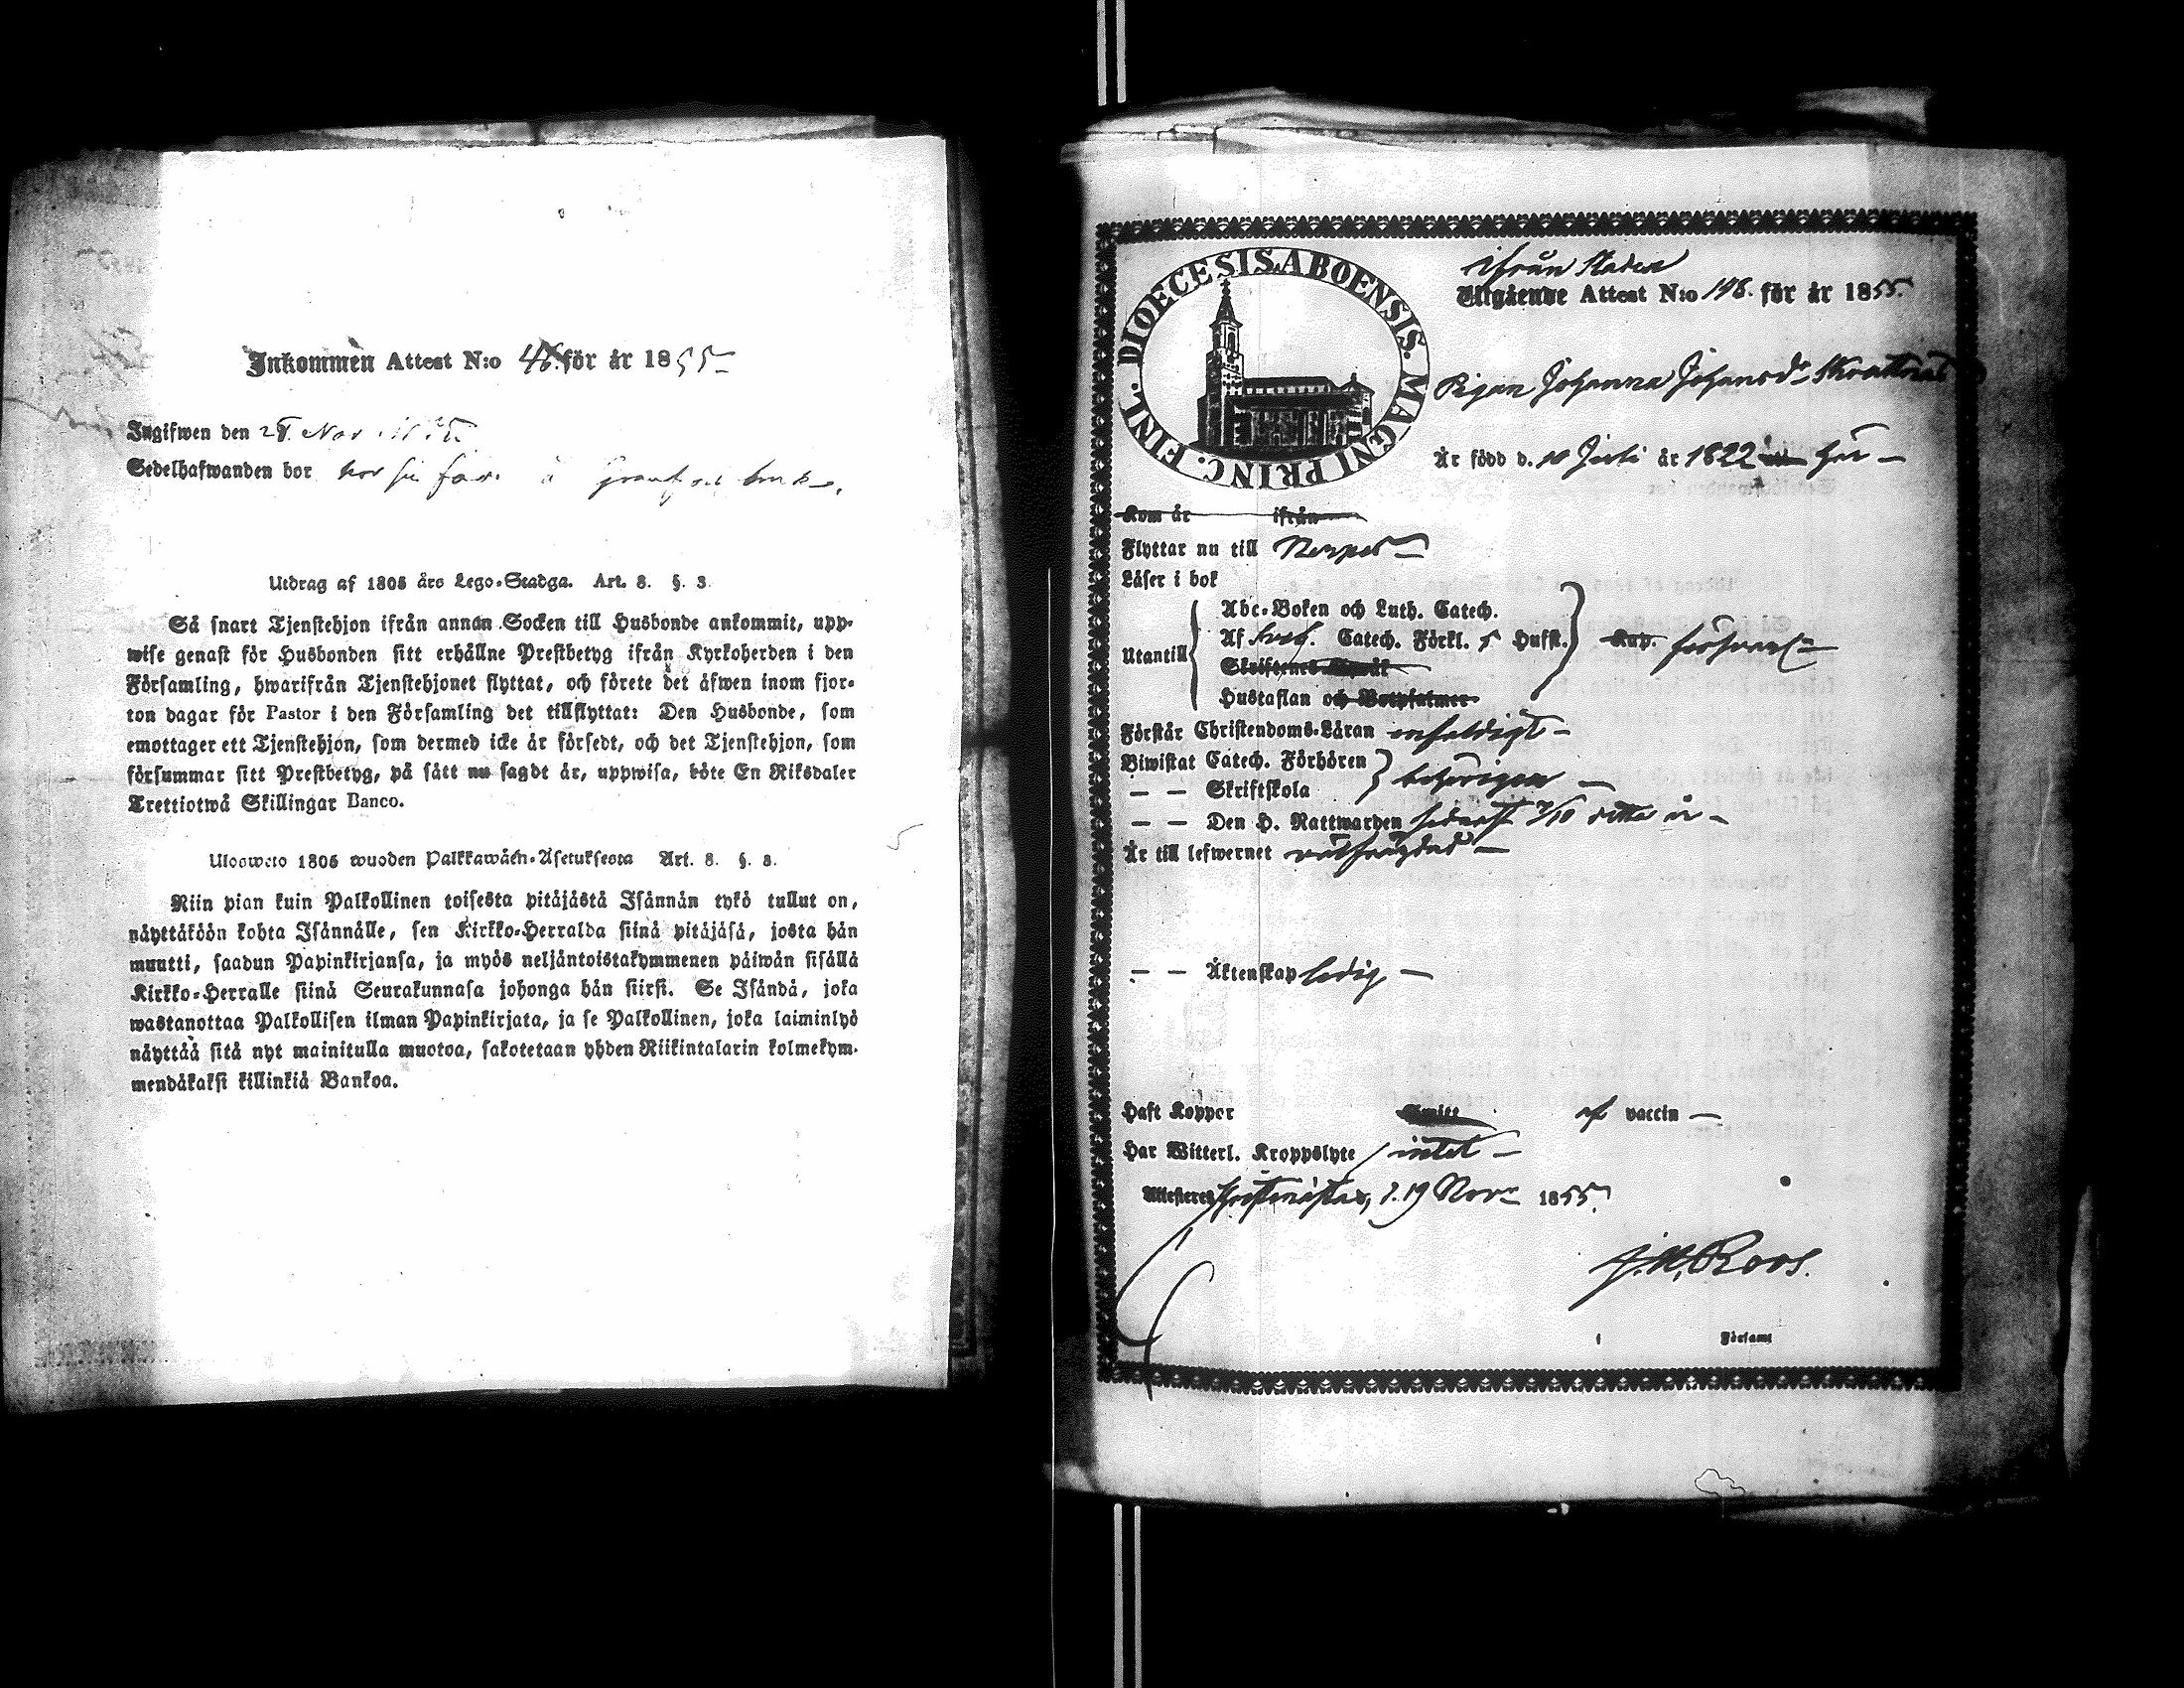 Inkommen Attest N:o 48. för år 1855
Ingifwen den 28. Nov. 1855
Sedelhafwanden bor hos sin far å
Utdrag af 1805 års Lego-Stadga. Art. 8. §. 3.
Så snart Tjenstehjon ifrån annan Socken till Husbonde ankommit, upp-
wise genast för Husbonden sitt erhållne Prestbetyg ifrån Kyrkoherden i den
Församling, hwarifrån Tjenstehjonet flyttat, och förete det äfwen inom fjor-
ton dagar för Pastor i den Församling det tillflyttat: Den Husbonde, som
emottager ett Tjenstehjon, som dermed icke är försedt, och det Tjenstehjon, som
försummar sitt Prestbetyg, på sätt nu sagdt är, uppwisa, böte En Riksdaler
Trettiotwå Skillingar Banco.
Ulosweto 1805 wuoden Palkkawäen-Asetuksesta Art. 8. §. 3.
Niin pian kuin Palkollinen toisesta pitäjästä Isännän tykö tullut on,
näyttäköön kohta Isännälle, sen Kirkko-Herralda siinä pitäjäsä, josta hän
muutti, saadun Papinkirjansa, ja myös neljäntoistakymmenen päiwän sisällä
Kirkko-Herralle siinä Seurakunnasa johonga hän siirsi. Se Isändä, joka
wastanottaa Palkollisen ilman Papinkirjata, ja se Palkollinen, joka laiminlyö
näyttää sitä nyt mainitulla muotoa, sakotetaan yhden Riikintalarin kolmekym-
mendäkaksi killinkiä Bankoa.
DIOECESIS ABOENSIS. MAGNI PRINC. FINL.
ifrån Staden
Utgående Attest N:o 148. för år 1855.
Pigan Johanna Johansdr Skrattnäs
Är född d. 10 Juli år 1822 här
Kom år ifrån
Flyttar nu till Nerpes
Läser i bok
Abc-Boken och Luth. Catech.
Utantill Af Catech. Förkl. 5 Hufst. Kap. försvarl.
Skriftenes
Hustaflan och Botpsalmer
Förstår Christendoms-Läran enfaldigt
Biwistat Catech. Förhören
— — Skriftskola behörigen
— — Den H. Nattwarden senast 7/10 detta år
Är till lefwernet välfrägdad
— — Äktenskap ledig
Haft Koppor Smitt af vaccin
Har Witterl. Kroppslyte intet
Attesteres Christinestad, d. 19 Novr 1855.
Roos.
i Församl